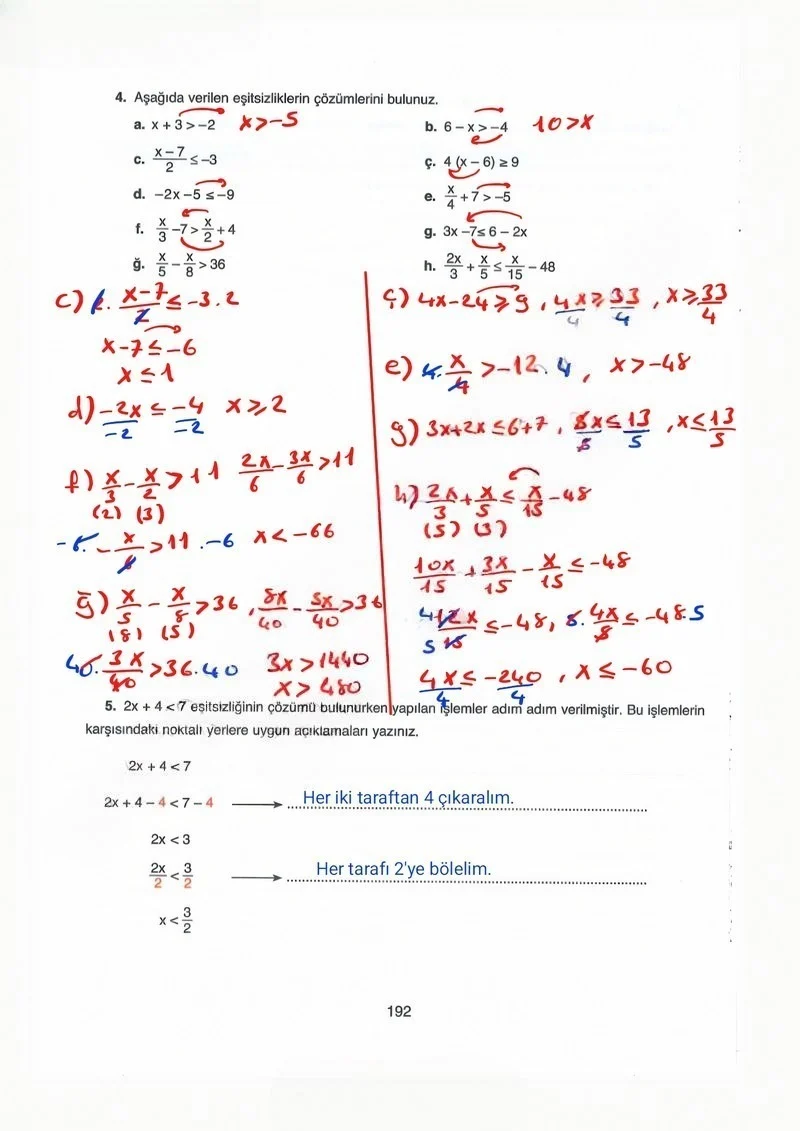 4. Aşağıda verilen eşitsizliklerin çözümlerini bulunuz.
a. x + 3 > -2 x > -5
b. 6 - x > -4 10 > x
c. (x - 7)/2 ≤ -3
ç. 4 (x - 6) ≥ 9
d. -2x - 5 ≤ -9
e. x/4 + 7 > -5
f. x/3 - 7 > x/2 + 4
g. 3x - 7 ≤ 6 - 2x
ğ. x/5 - x/8 > 36
h. 2x/3 + x/5 ≤ x/15 - 48
c) 2. (x-7)/2 ≤ -3.2
x-7 ≤ -6
x ≤ 1
d) -2x/-2 ≤ -4/-2 x ≥ 2
f) x/3 - x/2 > 11 2x/6 - 3x/6 > 11
(2) (3)
-6. -x/6 > 11 . -6 x < -66
ğ) x/5 - x/8 > 36, 8x/40 - 5x/40 > 36
(8) (5)
40. 3x/40 > 36.40 3x > 1440
x > 480
ç) 4x-24 ≥ 9, 4x/4 ≥ 33/4, x ≥ 33/4
e) 4. x/4 > -12.4, x > -48
g) 3x+2x ≤ 6+7, 5x/5 ≤ 13/5, x ≤ 13/5
h) 2x/3 + x/5 ≤ x/15 - 48
(5) (3)
10x/15 + 3x/15 - x/15 ≤ -48
4 12x/15 5 ≤ -48, 5. 4x/5 ≤ -48.5
4x/4 ≤ -240/4, x ≤ -60
5. 2x + 4 < 7 eşitsizliğinin çözümü bulunurken yapılan işlemler adım adım verilmiştir. Bu işlemlerin
karşısındaki noktalı yerlere uygun açıklamaları yazınız.
2x + 4 < 7
2x + 4 - 4 < 7 - 4 Her iki taraftan 4 çıkaralım.
2x < 3
2x/2 < 3/2 Her tarafı 2'ye bölelim.
x < 3/2
192